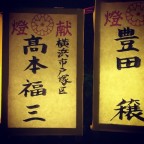 献燈
横浜市戸塚区
髙本福三
燈
豊田穣